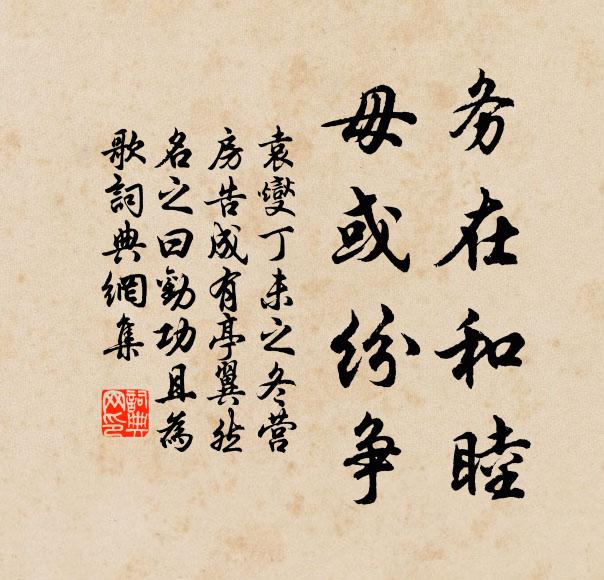 务在和睦
毋或纷争
袁燮丁未之冬营
房告成有亭翼然
名之曰劝功且为
歌词典网集
词典
网印